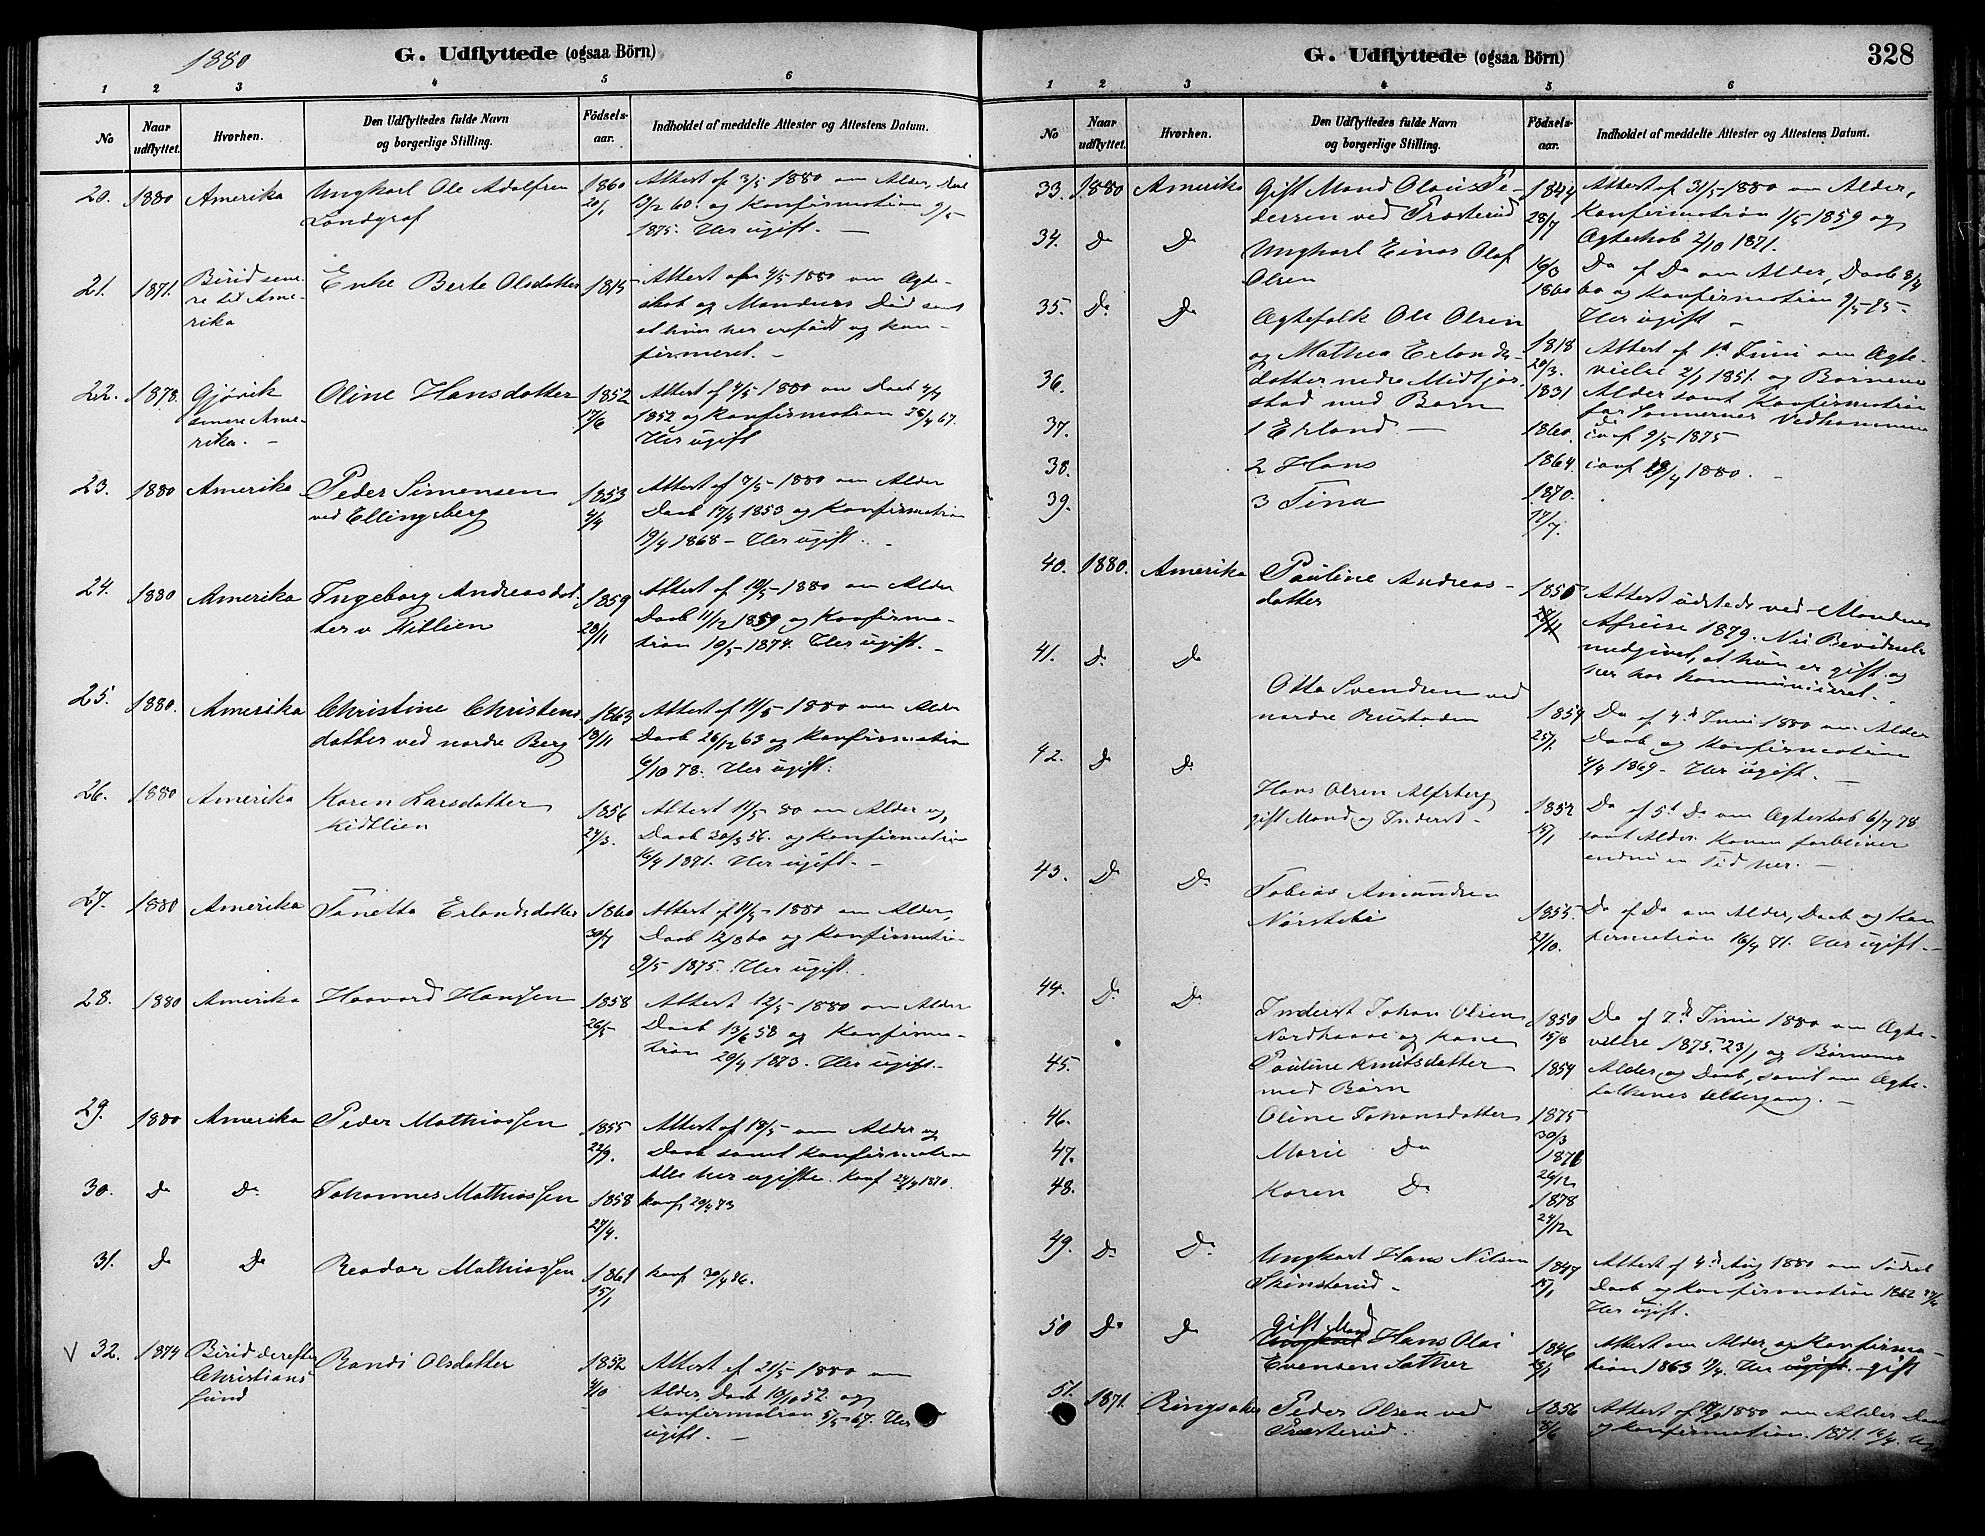 1880
G. Udflyttede (ogsaa Börn)
1 2 3 4 5 6
No
Naar udflyttet.
Hvorhen.
Den Udflyttedes fulde Navn og borgerlige Stilling.
Födsels-aar.
Indholdet af meddelte Attester og Attestens Datum.
20. 1880 Amerika Ungkarl Ole Adolfsen 1860 Attest af 3/5 1880 om Alder, Daab
Landgraf 20/1 12/2 60. og Konfirmation 9/5
1875. Her ugift. —
21. 1871. Birid sene- Enke Berte Olsdatter 1815 Attest af 4/5 1880 om Ægte-
re til Ame- skab og Mandens Död samt
rika at hun her er födt og kon-
firmeret. —
22. 1878. Gjövik Oline Hansdatter 1852 Attest af 4/5 1880 om Daab 4/7
senere Ame- 17/6 1852 og Konfirmation 28/4 67.
rika. — Her ugift
23. 1880 Amerika Peder Simensen 1853 Attest af 7/5 1880 om Alder
ved Ellingsberg 4/4 Daab 17/4 1853 og Konfirmation
19/4 1868 — Her ugift. —
24. 1880 Amerika Ingeborg Andreasdat- 1859 Attest af 10/5 1880 om Alder
ter v. Kitlien 28/11 Daab 11/12 1859 og Konfirma-
tion 10/5 1874. Her ugift. —
25. 1880. Amerika Christine Christens 1863 Attest af 11/5 1880 om Alder
datter ved nordre Berg 13/11 Daab 26/12 63 og Konfirmation
6/10 78. Her ugift.
26. 1880 Amerika Karen Larsdatter 1856 Attest 11/5 80 om Alder og
Kidtlien 24/3. Daab 30/3 56. og Konfirmation
16/4 1871. Her ugift. —
27. 1880 Amerika Tonetta Erlandsdatter 1860 Attest af 11/5 1880 om Alder,
30/7 Daab 12/8 60 og Konfirmation
9/5 1875. Her ugift.
28. 1880 Amerika Haavard Hansen 1858 Attest 12/5 1880 om Alder
26/5 Daab 13/6 58 og Konfirma-
tion 20/4 1873. Her ugift. —
29. 1880 Amerika Peder Mathiassen 1855 Attest af 18/5 om Alder og
22/9. Daab samt Konfirmation
Alle her ugifte. Konf 24/4 1870.
30. Do Do Johannes Mathiassen 1858 konf. 20/4 73
27/4.
31. Do Do Reodor Mathiassen 1861 konf 30/4 86.
15/1
V 32. 1874 Birid derefter Randi Olsdatter 1852 Attest af 21/5 1880 om
Christians 4/10 Alder, Daab 10/10 52 og
sund Konfirmation 5/5 67. Her
ugift. —
G. Udflyttede (ogsaa Börn) 328
1 2 3 4 5 6
No
Naar udflyttet.
Hvorhen.
Den Udflyttedes fulde Navn og borgerlige Stilling.
Födsels-aar.
Indholdet af meddelte Attester og Attestens Datum.
33. 1880 Amerika Gift Mand Olaus Pe- 1844 Attest af 31/5 1880 om Alder,
dersen ved Præsterud 28/7 Konfirmation 1/5 1859 og
Ægteskab 2/10 1871.
34. Do Do Ungkarl Einar Olaf 16/3 Do af Do om Alder, Daab 8/4
Olsen 1860 60 og Konfirmation 9/5 75 —
Her ugift —
35. Do Do Ægtefolk Ole Olsen 1818 Attest af 1st Juni om Ægte-
og Mathea Erlands- 20/3. vielse 2/1 1851. og Börnenes
36. datter nedre Midtjör- 1831 Alder samt Konfirmation
stad med Barn for Sönnernes Vedkommende
37. 1 Erland — 1860. conf 9/5 1875
38. 2 Hans 1864. conf 18/4 1880. —
39. 3 Tina 1870.
17/7.
40. 1880. Amerika Pauline Andreas- 1855 Attest udstedt ved Mandens
datter Afreise 1879. Nu Bevidnelse
medgivet, at hun er gift og
her har kommuniceret.
41. Do Do Otto Svendsen ved 1854 Do af 4de Juni 1880 om Alder
nordre Rustaden 25/1. Daab og Konfirmation
4/4 1869 — Her ugift. —
42. Do Do Hans Olsen Alfsberg 1852 Do af 5t Do om Ægteskab 6/7 78
gift Mand og Inderst — 15/1 samt Alder. Konen forbliver
endnu en Tid her. —
43. Do Do Tobias Amundsen 1855. Do af Do om Alder, Daab og Kon
Nörstebö 22/10. firmation 16/4 71. Her ugift. —
44. Do Do Inderst Johan Olsen 1850 Do af 7de Juni 1880 om Ægte-
Nordhaave og Kone 15/8 vielse 1875. 23/1 og Börnenes
45. Pauline Knutsdatter 1854 Alder og Daab, samt om Ægte-
med Börn folkenes Altergang. —
46. Oline Johansdatter 1875
30/3
47. Marie Do 1876
26/12
48. Karen Do 1878
24/12
49. Do Do Ungkarl Hans Nilsen 1847 Attest af 4de Aug 1880 om Födsel
Skönsterud — 15/1 Daab og Konfirmation 1862 27/4
Her ugift.
50 Do Do Gift Mand Hans Olai 1846 Attest om Alder og Konfirma-
Evensen Sæther 13/1 tion 1863 4/4. Her ugift. gift
51. 1871. Ringsaker Peder Olsen ved 1856 Attest af 1880 om Alder Daab
Præsterud. 8/6 og Konfirmation. 1871. 16/4.